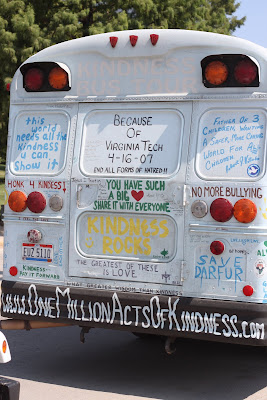 KINDNESS
this
world
needs all
the
kindness
u can
show it
BECAUSE
OF
VIRGINIA TECH
4-16-07
END ALL FORMS OF HATRED!!
FATHER OF 3
CHILDREN, WANTING
A SAFE, MORE CARING
WORLD FOR ALL
CHILDREN
HONK 4 KINDNESS!
YOU HAVE SUCH
A BIG
SHARE IT WITH EVERYONE
NO MORE BULLYING
KINDNESS
ROCKS
THE GREATEST OF THESE
IS LOVE
KINDNESS-
PAY IT FORWARD
SAVE
DARFUR
WHAT GREATER WISDOM THAN KINDNESS
WWW.ONEMILLIONACTSOFKINDNESS.COM